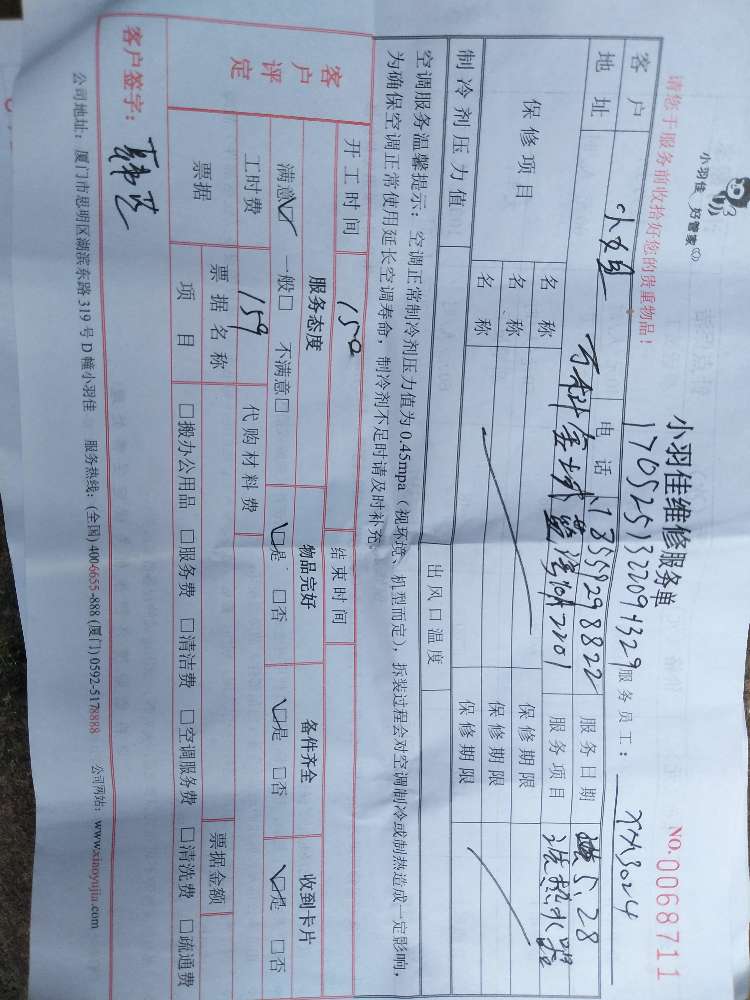 小羽佳 好管家
小羽佳维修服务单
NO.0068711
1705251322094329
请您于服务前收拾好您的贵重物品！
服务员工： XM3024
客户 小姐 电话 18559298822 服务日期 5.28
地址 万科金域蓝湾 2201 服务项目 热水器
保修项目 名称 保修期限
名称 保修期限
名称 保修期限
制冷剂压力值 出风口温度
空调服务温馨提示：空调正常制冷剂压力值为0.45mpa（视环境、机型而定），拆装过程会对空调制冷或制热造成一定影响，
为确保空调正常使用延长空调寿命，制冷剂不足时请及时补充。
开工时间 结束时间
客户评定 服务态度 物品完好 备件齐全 收到卡片
满意☑ 一般□ 不满意□ ☑是 □否 ☑是 □否 ☑是 □否
工时费 159 代购材料费
票据 票据名称 票据金额
项目 □搬办公用品 □服务费 □清洁费 □空调服务费 □清洗费 □疏通费
客户签字：
公司地址：厦门市思明区湖滨东路319号D幢小羽佳 服务热线：(全国) 4006655-888 (厦门) 0592-5178888 公司网站：www.xiaoyujia.com